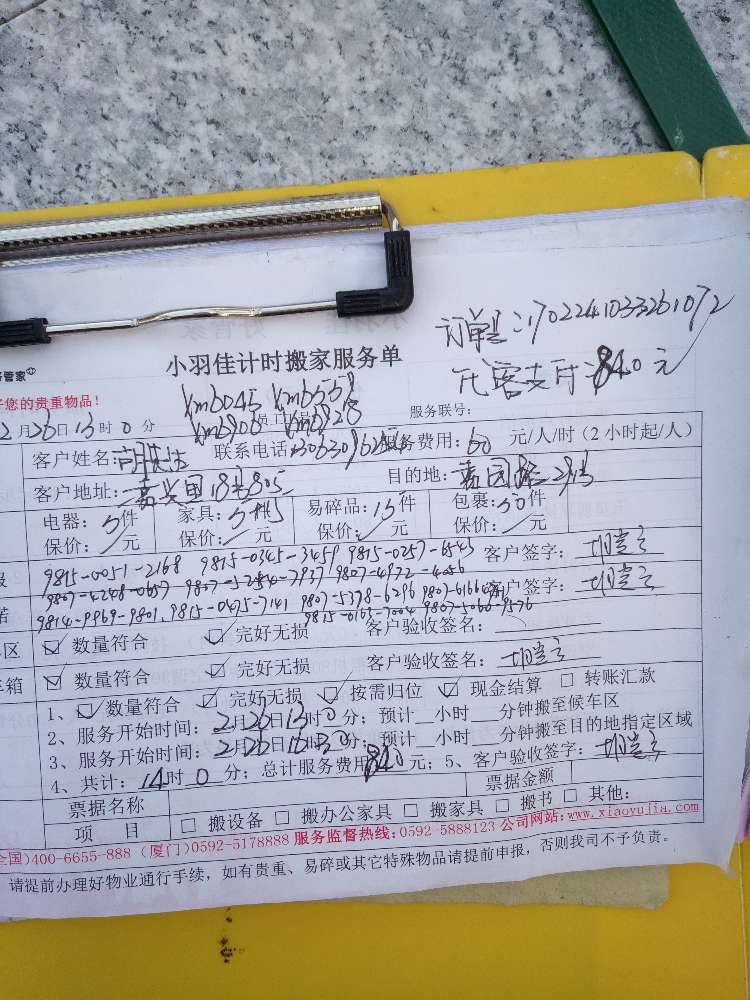 订单号:1702241033261072
代客支付:840元
管家
小羽佳计时搬家服务单
好您的贵重物品!
Xm6045 Xm6558
2月26日13时0分 Xm6906 Xm6928 服务联号:
客户姓名: 联系电话: 服务费用:60元/人/时(2小时起/人)
客户地址: 嘉兴里18号805 目的地:
电器:5件 家具:5件 易碎品:15件 包裹:30件
保价:/元 保价:/元 保价:/元 保价:/元
9815-0051-2168 9815-0345-3459 9815-0257-6543 客户签字:
9807-4248-0657 9807-5284-7937 9807-4972-4056
9814-9969-9801. 9815-0475-7141 9807-5378-6296 客户签字:
9815-0163-7004 9807-5066-9576
区 数量符合 完好无损 客户验收签名:
箱 数量符合 完好无损 客户验收签名:
1、数量符合 完好无损 按需归位 现金结算 转账汇款
2、服务开始时间:2月26日13时0分;预计 小时 分钟搬至候车区
3、服务开始时间:2月26日16时30分;预计 小时 分钟搬至目的地指定区域
4、共计:14时0分;总计服务费用840元;5、客户验收签字:
票据名称 票据金额
项 目 搬设备 搬办公家具 搬家具 搬书 其他:
全国)400-6655-888 (厦门)0592-5178888 服务监督热线:0592-5888123 公司网站:www.xiaoyujia.com
请提前办理好物业通行手续,如有贵重、易碎或其它特殊物品请提前申报,否则我司不予负责。